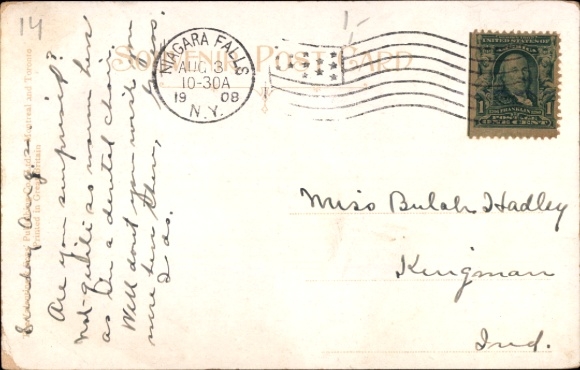 14
1-
SOUVENIR POST CARD
NIAGARA FALLS
AUG 31
10-30A
1908
N.Y.
UNITED STATES OF
AMERICA
FRANKLIN
1 POSTAGE 1
ONE CENT
Miss Bulah Hadley
Kingman
Ind.
Sunday Aug.
Are you surprised?
not-quite as warm here
as in a dental chair.
Well don't you wish you
were here then,
I do.
Montreal and Toronto
Printed in Great Britain